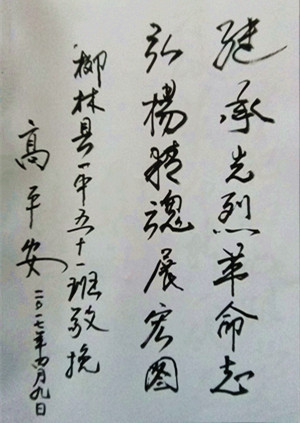 继承先烈革命志
弘楊精魂展宏图
柳林县一中五十一班敬挽
高平安
二〇一七年四月九日